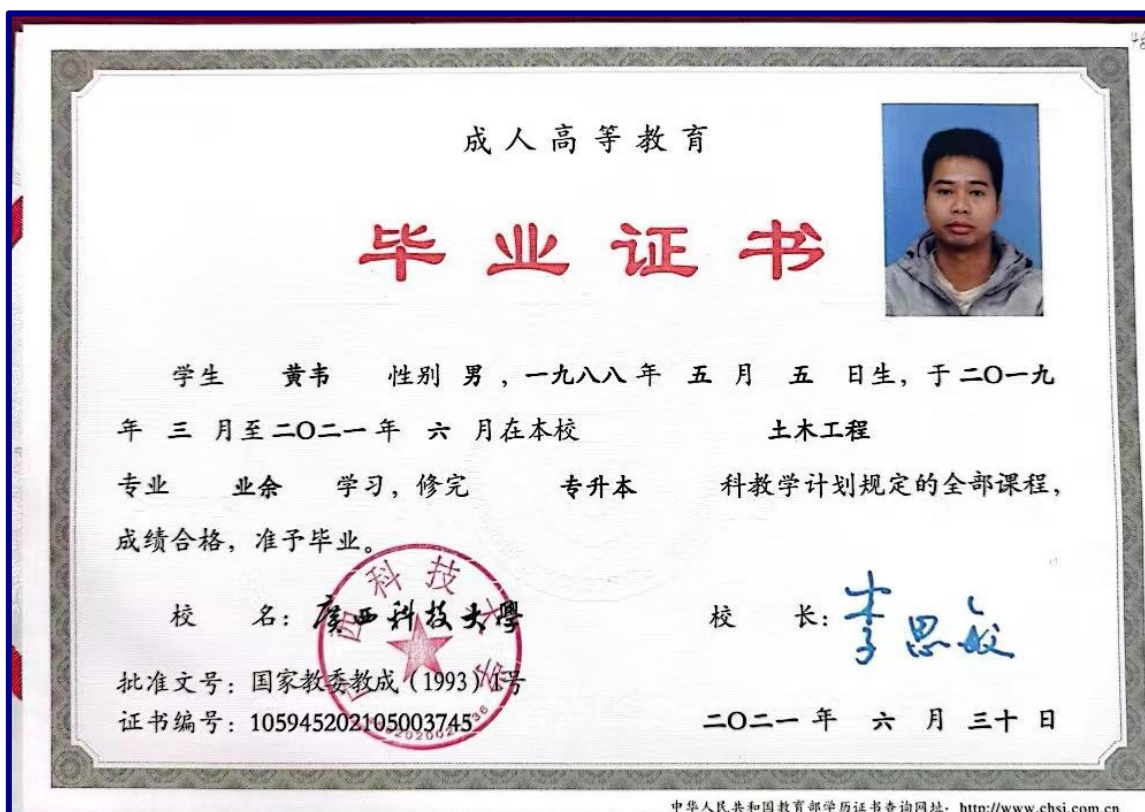 成人高等教育
毕业证书
学生 黄韦 性别 男 ，一九八八 年 五 月 五 日生，于 二〇一九
年 三 月至 二〇二一 年 六 月在本校 土木工程
专业 业余 学习，修完 专升本 科教学计划规定的全部课程，
成绩合格，准予毕业。
校 名：广西科技大學
校 长：李思敏
批准文号：国家教委教成（1993）1号
证书编号：105945202105003745
二〇二一 年 六 月 三十 日
中华人民共和国教育部学历证书查询网址：http://www.chsi.com.cn